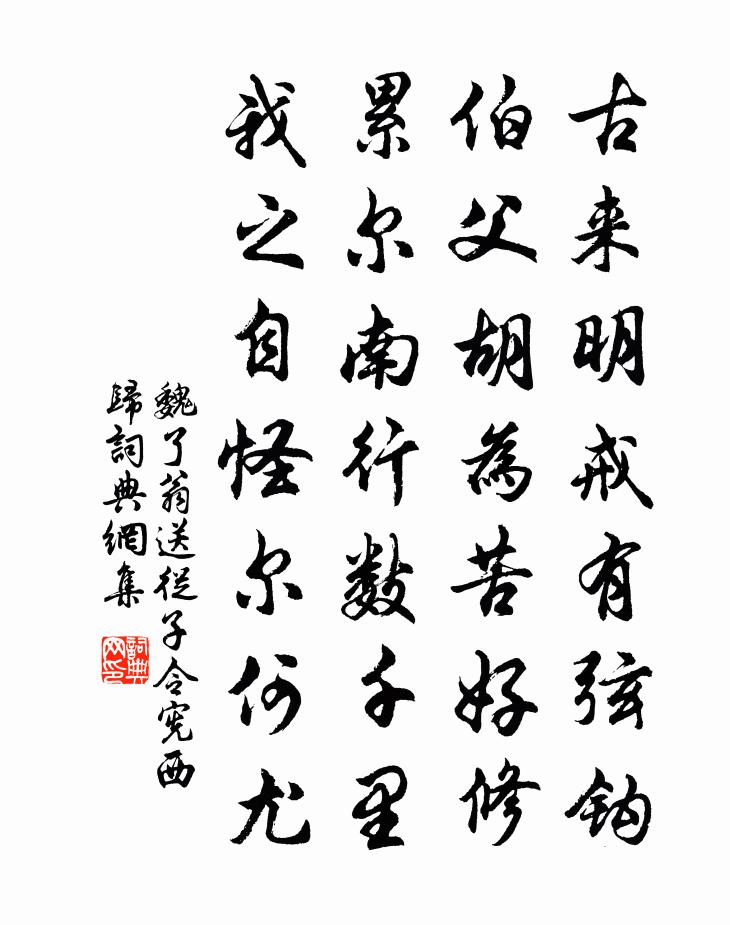 古来明戒有弦钩
伯父胡為苦好修
累尔南行数千里
我之自怪尔何尤
魏了翁送従子令寃西
歸詞典網集
詞典网印